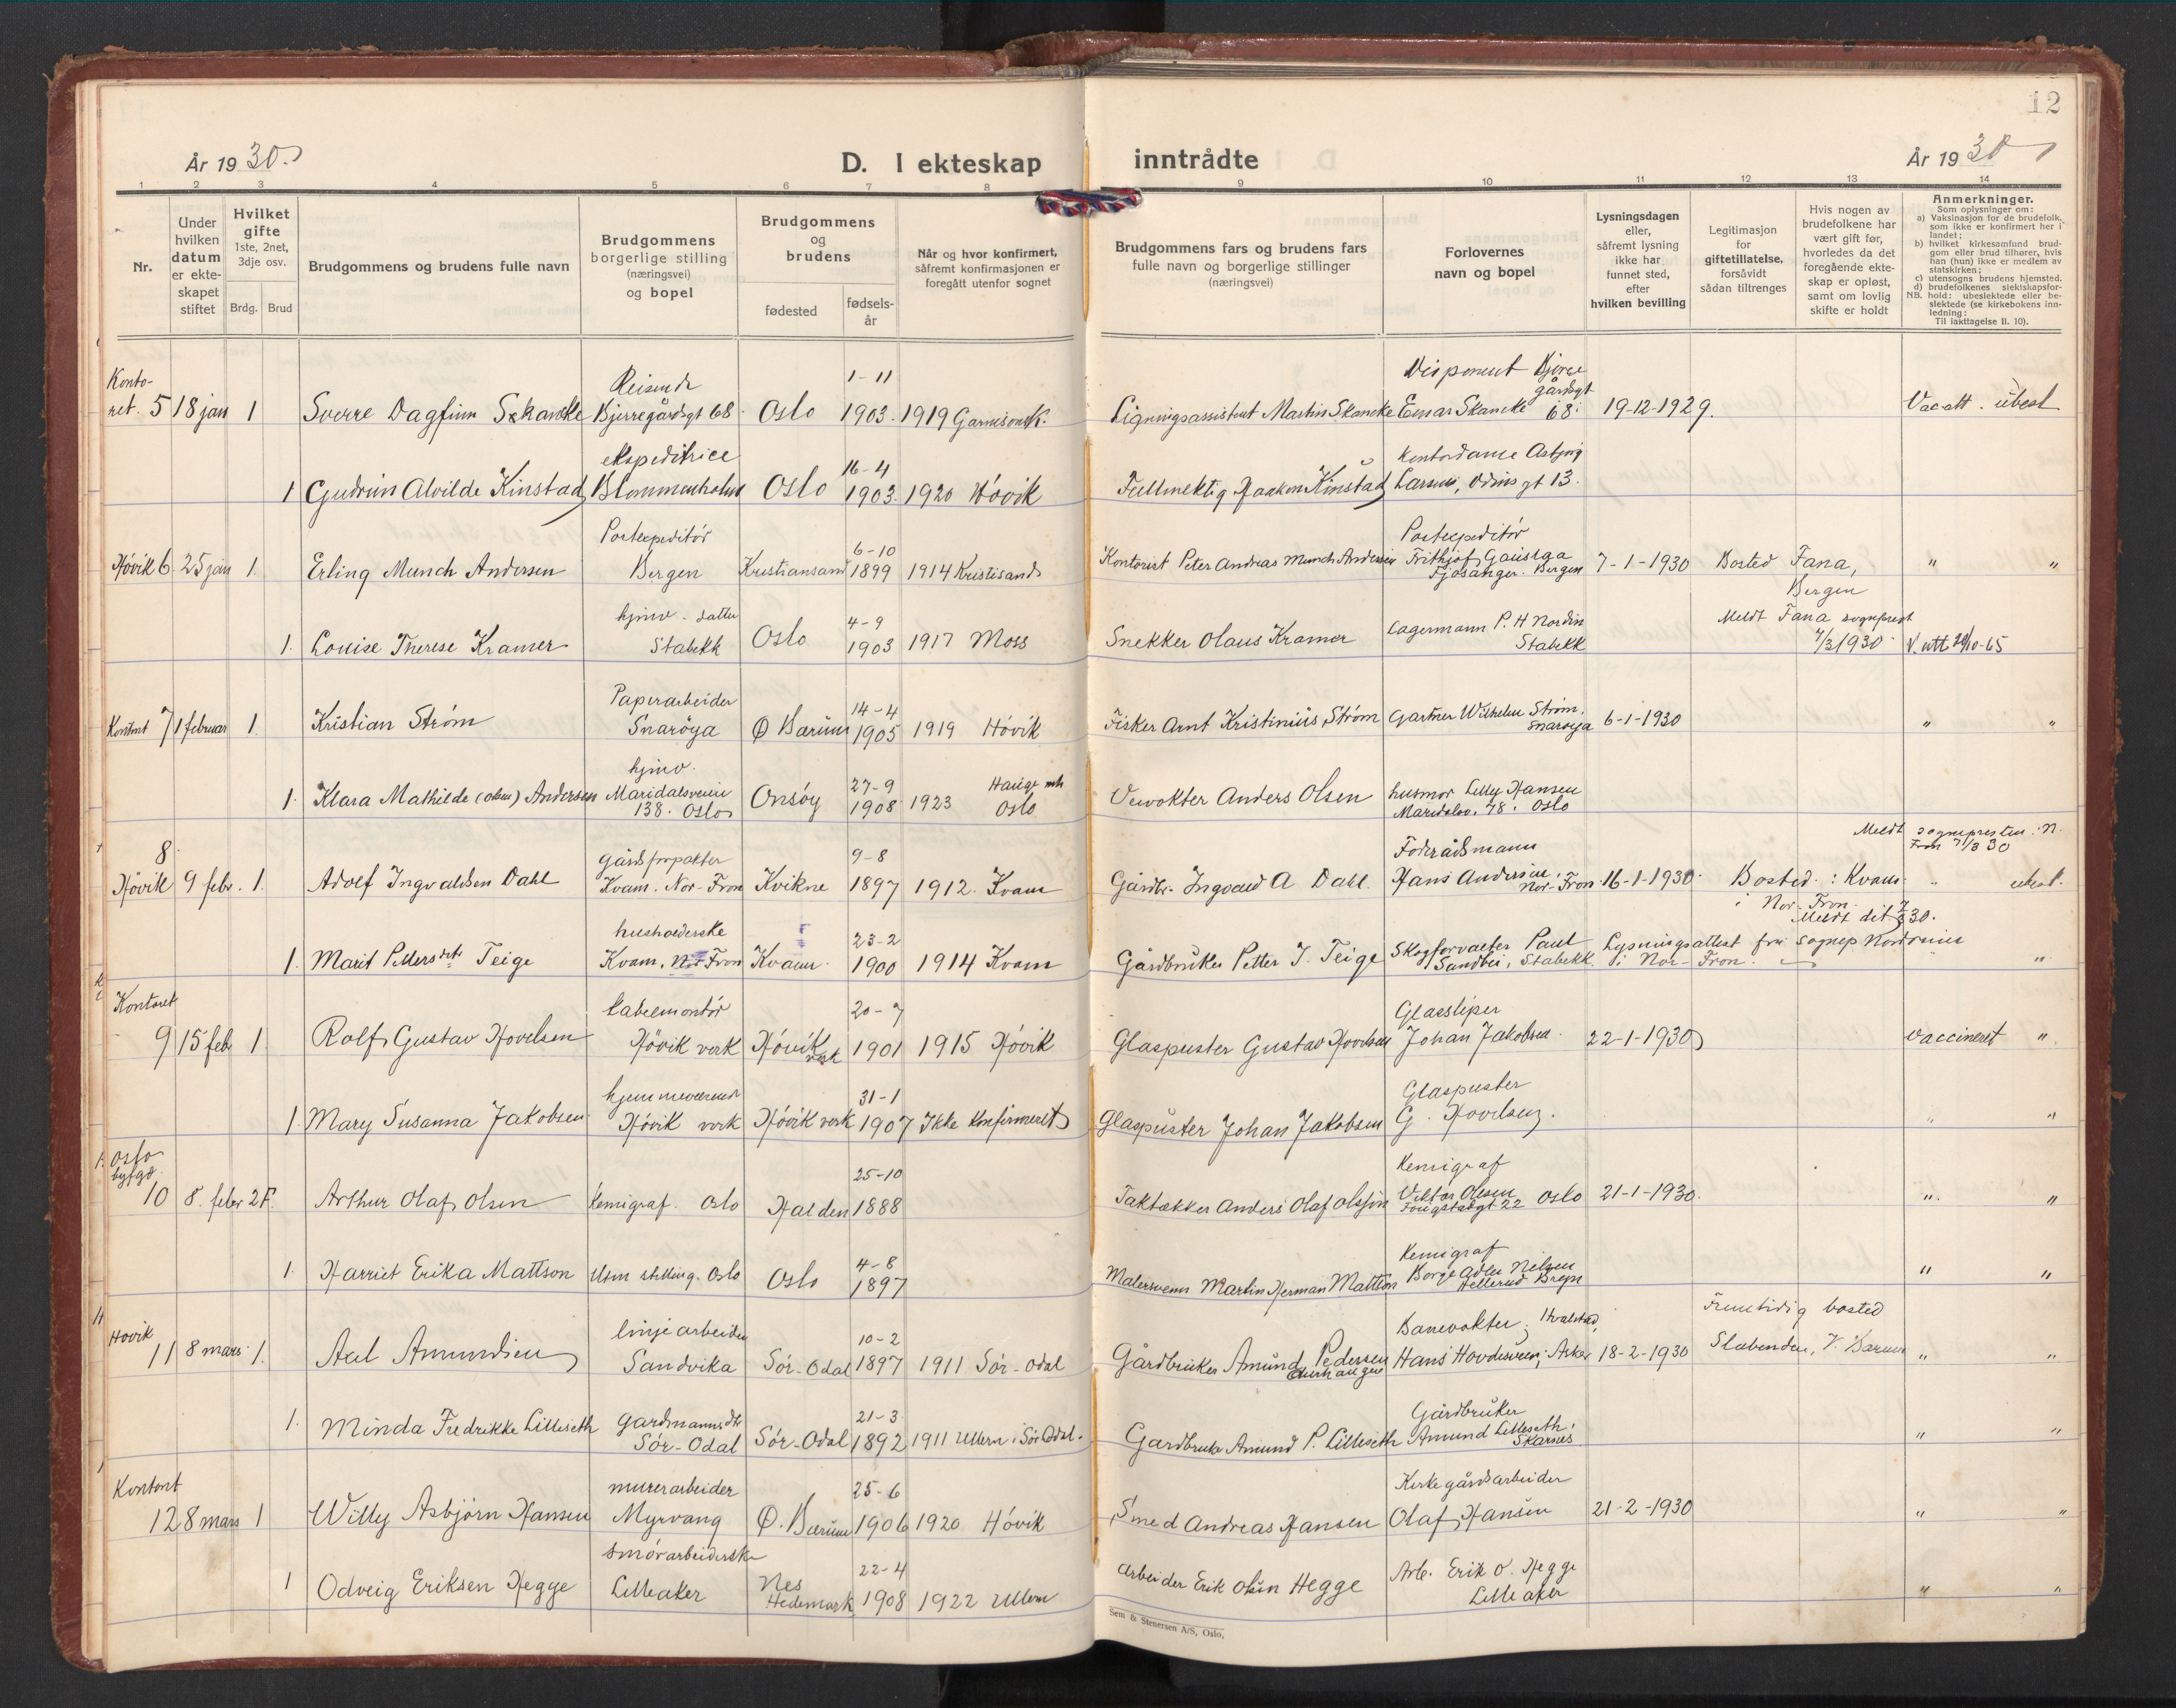 12
År 1930.
D. I ekteskap inntrådte
År 1930
1 2 3 4 5 6 7 8 9 10 11 12 13 14
Nr.
Under hvilken datum er ekteskapet stiftet
Hvilket gifte 1ste, 2net, 3dje osv.
Brdg. Brud
Brudgommens og brudens fulle navn
Brudgommens borgerlige stilling (næringsvei) og bopel
Brudgommens og brudens
fødested
fødselsår
Når og hvor konfirmert, såfremt konfirmasjonen er foregått utenfor sognet
Brudgommens fars og brudens fars fulle navn og borgerlige stillinger (næringsvei)
Forlovernes navn og bopel
Lysningsdagen eller, såfremt lysning ikke har funnet sted, efter hvilken bevilling
Legitimasjon for giftetillatelse, forsåvidt sådan tiltrenges
Hvis nogen av brudefolkene har vært gift før, hvorledes da det foregående ekteskap er opløst, samt om lovlig skifte er holdt
Anmerkninger.
Som oplysninger om:
a) Vaksinasjon for de brudefolk, som ikke er konfirmert her i landet;
b) hvilket kirkesamfund brudgom eller brud tilhører, hvis han (hun) ikke er medlem av statskirken;
c) utensogns brudens hjemsted.
d) brudefolkenes slektskapsforhold: ubeslektede eller beslektede (se kirkebokens innledning:
NB.
Til iakttagelse II. 10).
Kontoret. 5 18 jan 1 Sverre Dagfinn Skancke Reisende Bjerregårdsgt 68 Oslo 1-11 1903. 1919 Garnisonsk. Ligningsassistent Martin Skancke Disponent Einar Skancke Bjerregårdsgt 68. 19-12-1929. Vac att. ubesl
1 Gudrun Alvilde Kinstad ekspeditrice Blommenholm Oslo 16-4 1903. 1920 Høvik Fullmektig Haakon Kinstad Kontordame Asbjørg Larsen, Odins gt 13.
Høvik 6 25 jan 1. Erling Munch Andersen Postexpeditør Bergen Kristiansand 6-10 1899 1914 Kristisand Kontorist Peter Andreas Munch Andersen Postexpeditør Frithjof Gaustaa Fjøsanger. Bergen 7-1-1930 Bosted Fana, Bergen " "
1. Louise Therese Kramer hjmv. datter Stabekk Oslo 4-9 1903 1917 Moss Snekker Olaus Kramer Lagermann P. H Nordin Stabekk Meldt Fana sogneprest 7/3 1930 V. att 20/10-65
Kontoret 7 1 februar 1. Kristian Strøm Paperarbeider Snarøya Ø Bærum 14-4 1905 1919 Høvik Fisker Arnt Kristinius Strøm Gartner Wilhelm Strøm. Snarøya 6-1-1930 " "
1. Klara Mathilde (Olsen) Andersen hjmv. Maridalsveien 138. Oslo Onsøy 27-9 1908 1923 Hauge mh Oslo Veivokter Anders Olsen husmor Lilly Hansen Maridalsv. 78. Oslo
8. Høvik 9 febr. 1. Adolf Ingvaldsen Dahl gårdsforpakter Kvam. Nor-Fron Kvikne 9-8 1897 1912. Kvam Gårdbr. Ingvald A Dahl. Føderådsmann Hans Andersen. Nor-Fron 16-1-1930. Bosted: Kvam i Nor-Fron. Meldt dit 7/3 30. Meldt sognepresten i N. Fron 7/3 30 " ubesl.
1. Marit Pettersdtr Teige husholderske Kvam. Nor-Fron Kvam 23-2 1900 1914 Kvam Gårdbruker Petter J. Teige Skogforvalter Paul Sandbu, Stabekk. Lysningsattest fra sognep. i Nor-Fron. " "
Kontoret 9 15 feb 1 Rolf Gustav Hovelsen kabelmontør Høvik verk Høvik verk 20-7 1901 1915 Høvik Glaspuster Gustav Hovelsen Glassliper Johan Jakobsen. 22-1-1930 Vaccineret "
1. Mary Susanna Jakobsen hjemmeværende Høvik verk Høvik verk 31-1 1907 Ikke konfirmeret Glaspuster Johan Jakobsen Glaspuster G. Hovelsen. " "
Oslo byfgd. 10 8. febr 2 F. Arthur Olaf Olsen Kemigraf. Oslo Halden 25-10 1888 Taktækker Anders Olaf Olsson Kemigraf Viktor Olsen Fougstadgt 22 Oslo 21-1-1930. " "
1. Harriet Erika Mattson Uten stilling. Oslo Oslo 4-8 1897 Malersvenn Martin Herman Mattson Kemigraf Borge Adler Nielsen Hellerud Bryn " "
Høvik 11 8 mars 1. Axel Amundsen linjearbeider Sandvika Sør-Odal 10-2 1897 1911 Sør-Odal Gårdbruker Amund Pedersen Banevokter Hans Hovdesveen, Hvalstad, Asker 18-2-1930 Fremtidig bosted Slabenden, V. Bærum " "
1. Minda Fredrikke Lilleseth gardmannsdtr Sør-Odal Sør-Odal 21-3 1892 1911 Ullern i Sør Odal. Gardbruker Amund P. Lilleseth Gårdbruker Amund Lilleseth Skarnes " "
Kontoret 12 8 mars 1 Willy Asbjørn Hansen murerarbeider Myrvang Ø. Bærum 25-6 1906 1920 Høvik Smed Andreas Hansen Kirkegårdsarbeider Olaf Hansen 21-2-1930 " "
1 Odveig Eriksen Hegge smørarbeiderske Lilleaker Nes Hedemark 22-4 1908 1922 Ullern Arbeider Erik Olsen Hegge Arb. Erik O. Hegge Lilleaker " "
Sem & Stenersen A/S, Oslo,